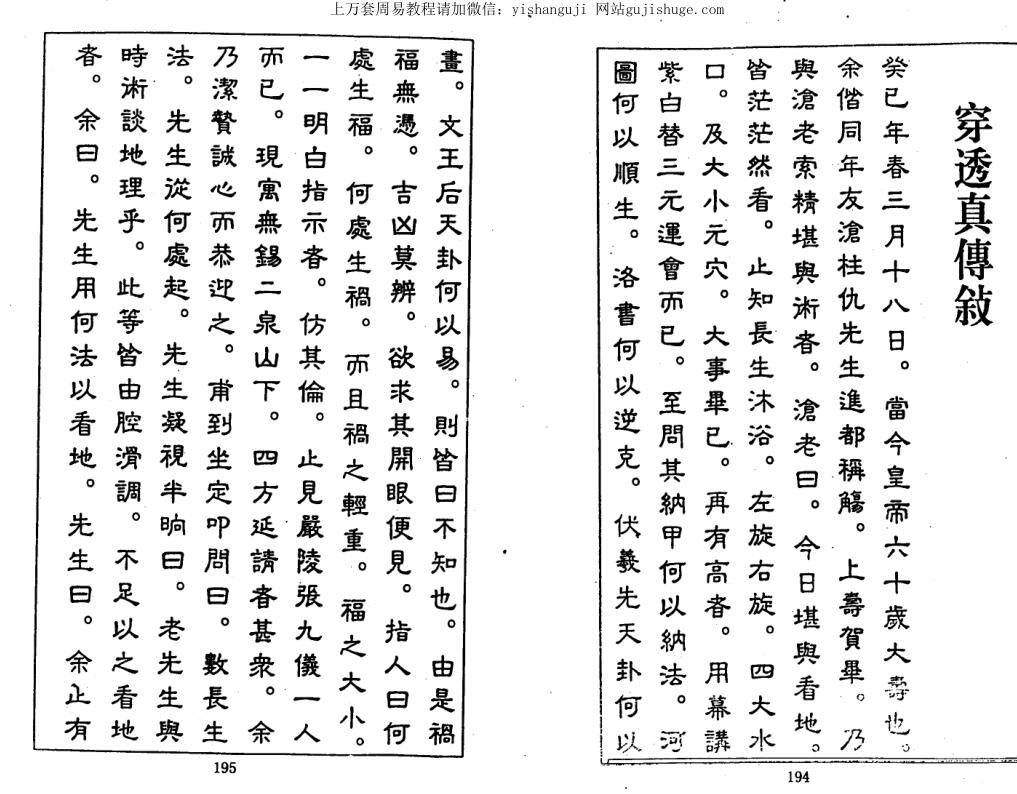 上万套周易教程请加微信：yishanguji 网站gujishuge.com
穿透真傳敍
癸已年春三月十八日。當今皇帝六十歲大壽也。
余偕同年友滄柱仇先生進都稱觴。上壽賀畢。乃
與滄老索精堪輿術者。滄老曰。今日堪輿看地。
皆茫茫然看。止知長生沐浴。左旋右旋。四大水
口。及大小元穴。大事畢已。再有高者。用幕講
紫白替三元運會而已。至問其納甲何以納法。河
圖何以順生。洛書何以逆克。伏羲先天卦何以
194
畫。文王后天卦何以易。則皆曰不知也。由是禍
福無憑。吉凶莫辨。欲求其開眼便見。指人曰何
處生福。何處生禍。而且禍之輕重。福之大小。
一一明白指示者。仿其倫。止見嚴陵張九儀一人
而已。現寓無錫二泉山下。四方延請者甚衆。余
乃潔贄誠心而恭迎之。甫到坐定叩問曰。數長生
法。先生從何處起。先生凝視半晌曰。老先生與
時術談地理乎。此等皆由腔滑調。不足以之看地
者。余曰。先生用何法以看地。先生曰。余止有
195